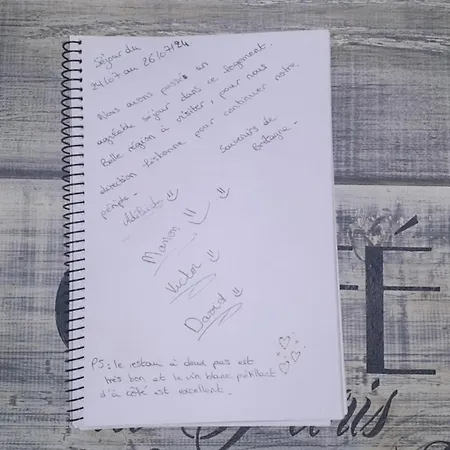 Séjour du
24/07 au 26/07/24
Nous avons passés un
agréable séjour dans ce logement.
Belle région à visiter, pour nous
direction pour continuer notre
périple -
Souvenirs de
Bretagne -
Manon
Victor
David
PS : le restau à deux pas est
très bon et le vin blanc pétillant
d'à côté est excellent -